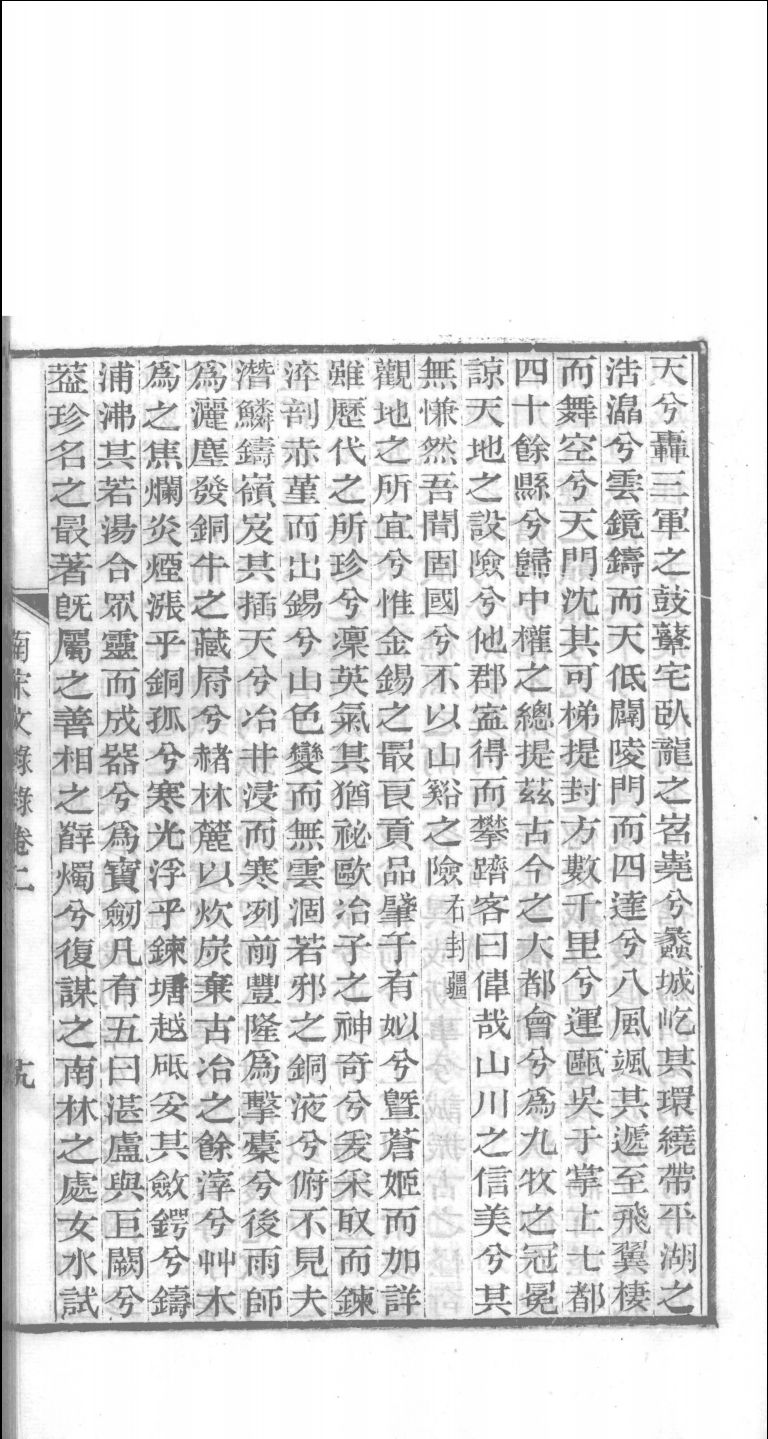 天兮轟三軍之鼓鼙宅臥龍之岧嶤兮蠡城屹其環繞帶平湖之
浩溔兮雲鏡鑄而天低闢陵門而四達兮八風颯其遞至飛翼棲
而舞空兮天門沈其可梯提封方數千里兮運甌吳于掌上七都
四十餘縣兮歸中權之總提茲古今之大都會兮爲九牧之冠冕
諒天地之設險兮他郡寍得而攀躋客曰偉哉山川之信美兮其
無慊然吾聞固國兮不以山谿之險右封疆
觀地之所宜兮惟金錫之最良貢品肇于有姒兮曁蒼姬而加詳
雖歷代之所珍兮凜英氣其猶祕歐冶子之神奇兮爰采取而鍊
淬剖赤堇而出錫兮山色變而無雲涸若邪之銅液兮俯不見夫
潛鱗鑄嶺岌其插天兮冶井浸而寒冽前豐隆爲擊橐兮後雨師
爲灑塵發銅牛之藏㞕兮赭林麓以炊炭棄古冶之餘滓兮艸木
爲之焦爛炎煙漲乎銅孤兮寒光浮乎鍊塘越砥㚣其斂鍔兮鑄
浦沸其若湯合眾靈而成器兮爲寶劒凡有五曰湛盧與巨闕兮
葢珍名之最著旣屬之善相之辥燭兮復謀之南林之處女水試
南宋文錄錄卷二